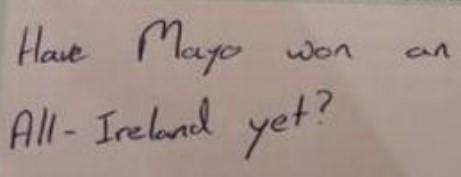 Have Mayo won an
All-Ireland yet?